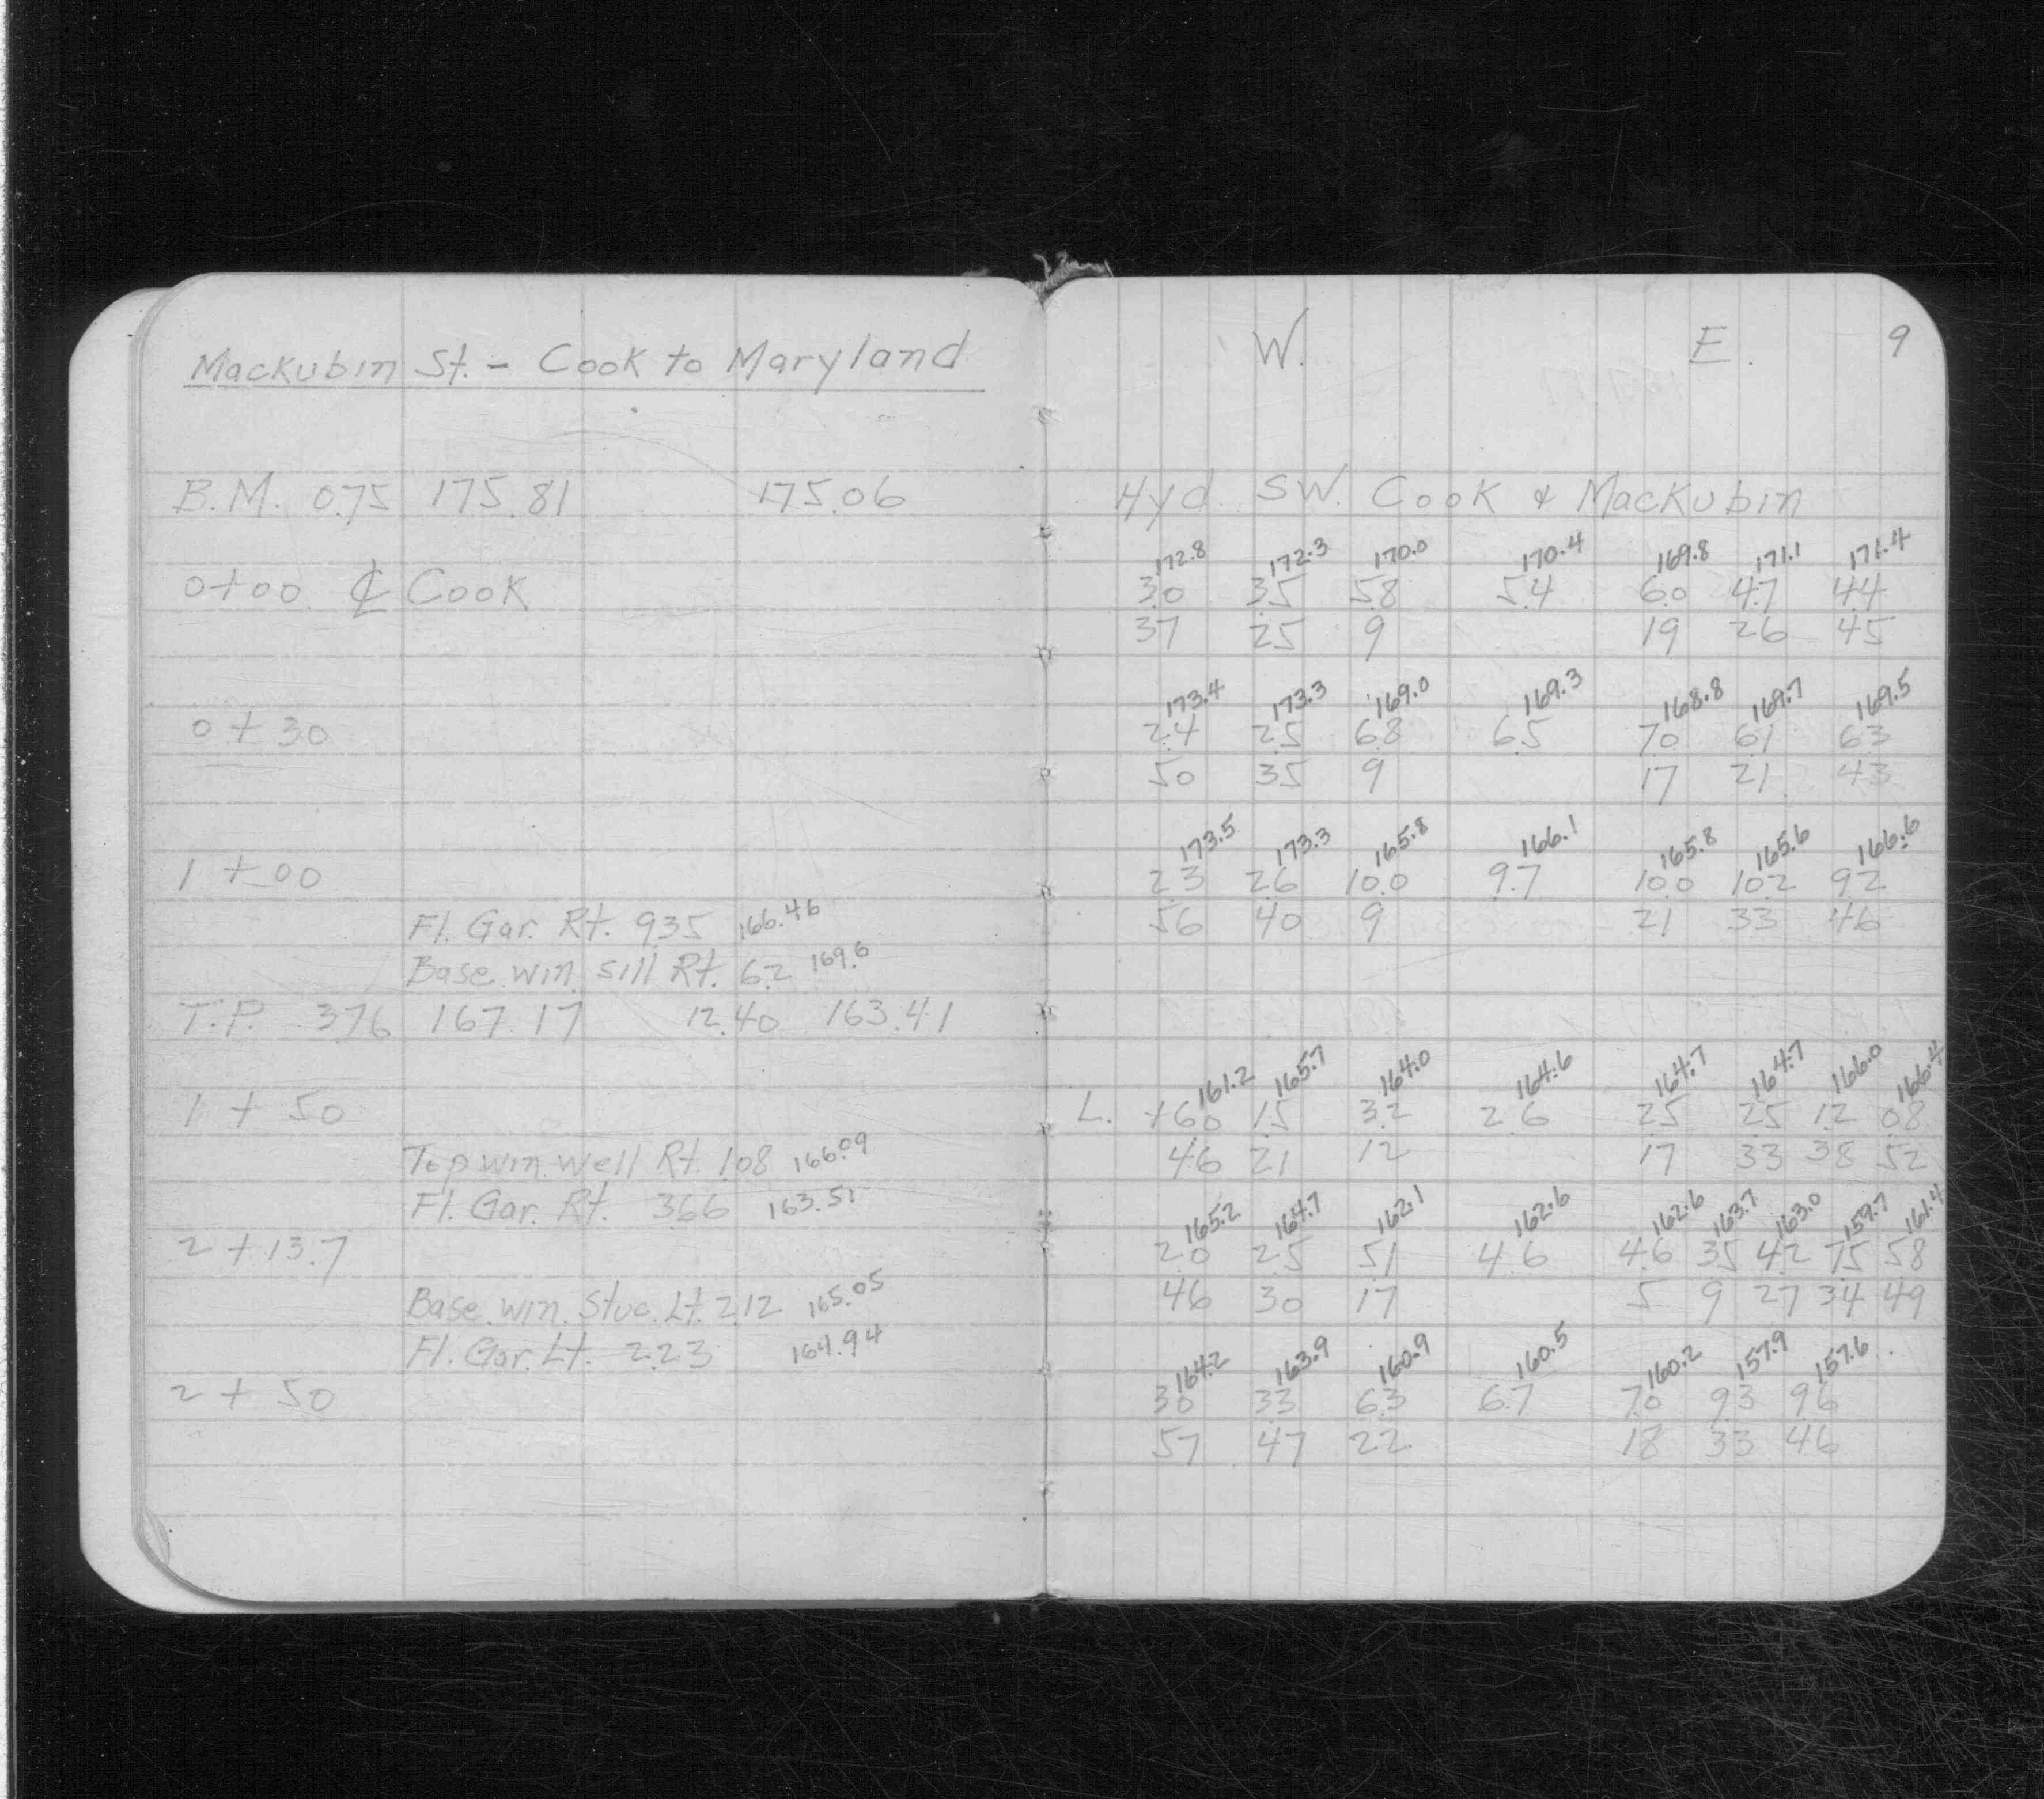 Mackubin St. - Cook to Maryland
B.M. 0.75 175.81 175.06
0+00 ℄ Cook
0+30
1+00
Fl. Gar. Rt. 935 166.46
Base. win. sill Rt. 62 169.6
T.P. 376 167.17 12.40 163.41
1+50
Top win. well Rt. 1.08 166.09
Fl. Gar. Rt. 366 163.51
2+13.7
Base. win. Stuc. Lt. 2.12 165.05
Fl. Gar. Lt. 2.23 164.94
2+50
W. E. 9
Hyd. SW. Cook & Mackubin
172.8 172.3 170.0 170.4 169.8 171.1 171.4
3.0 3.5 5.8 5.4 6.0 4.7 4.4
37 25 9 19 26 45
173.4 173.3 169.0 169.3 168.8 169.7 169.5
2.4 2.5 6.8 6.5 7.0 6.1 6.3
50 35 9 17 21 43
173.5 173.3 165.8 166.1 165.8 165.6 166.6
2.3 2.6 10.0 9.7 10.0 10.2 9.2
56 40 9 21 33 46
161.2 165.7 164.0 164.6 164.7 164.7 166.0 166.4
L. +6.0 1.5 3.2 2.6 2.5 2.5 1.2 0.8
46 21 12 17 33 38 52
165.2 164.7 162.1 162.6 162.6 163.7 163.0 159.7 161.4
2.0 2.5 5.1 4.6 4.6 3.5 4.2 7.5 5.8
46 30 17 5 9 27 34 49
164.2 163.9 160.9 160.5 160.2 157.9 157.6
3.0 3.3 6.3 6.7 7.0 9.3 9.6
57 47 22 18 33 46